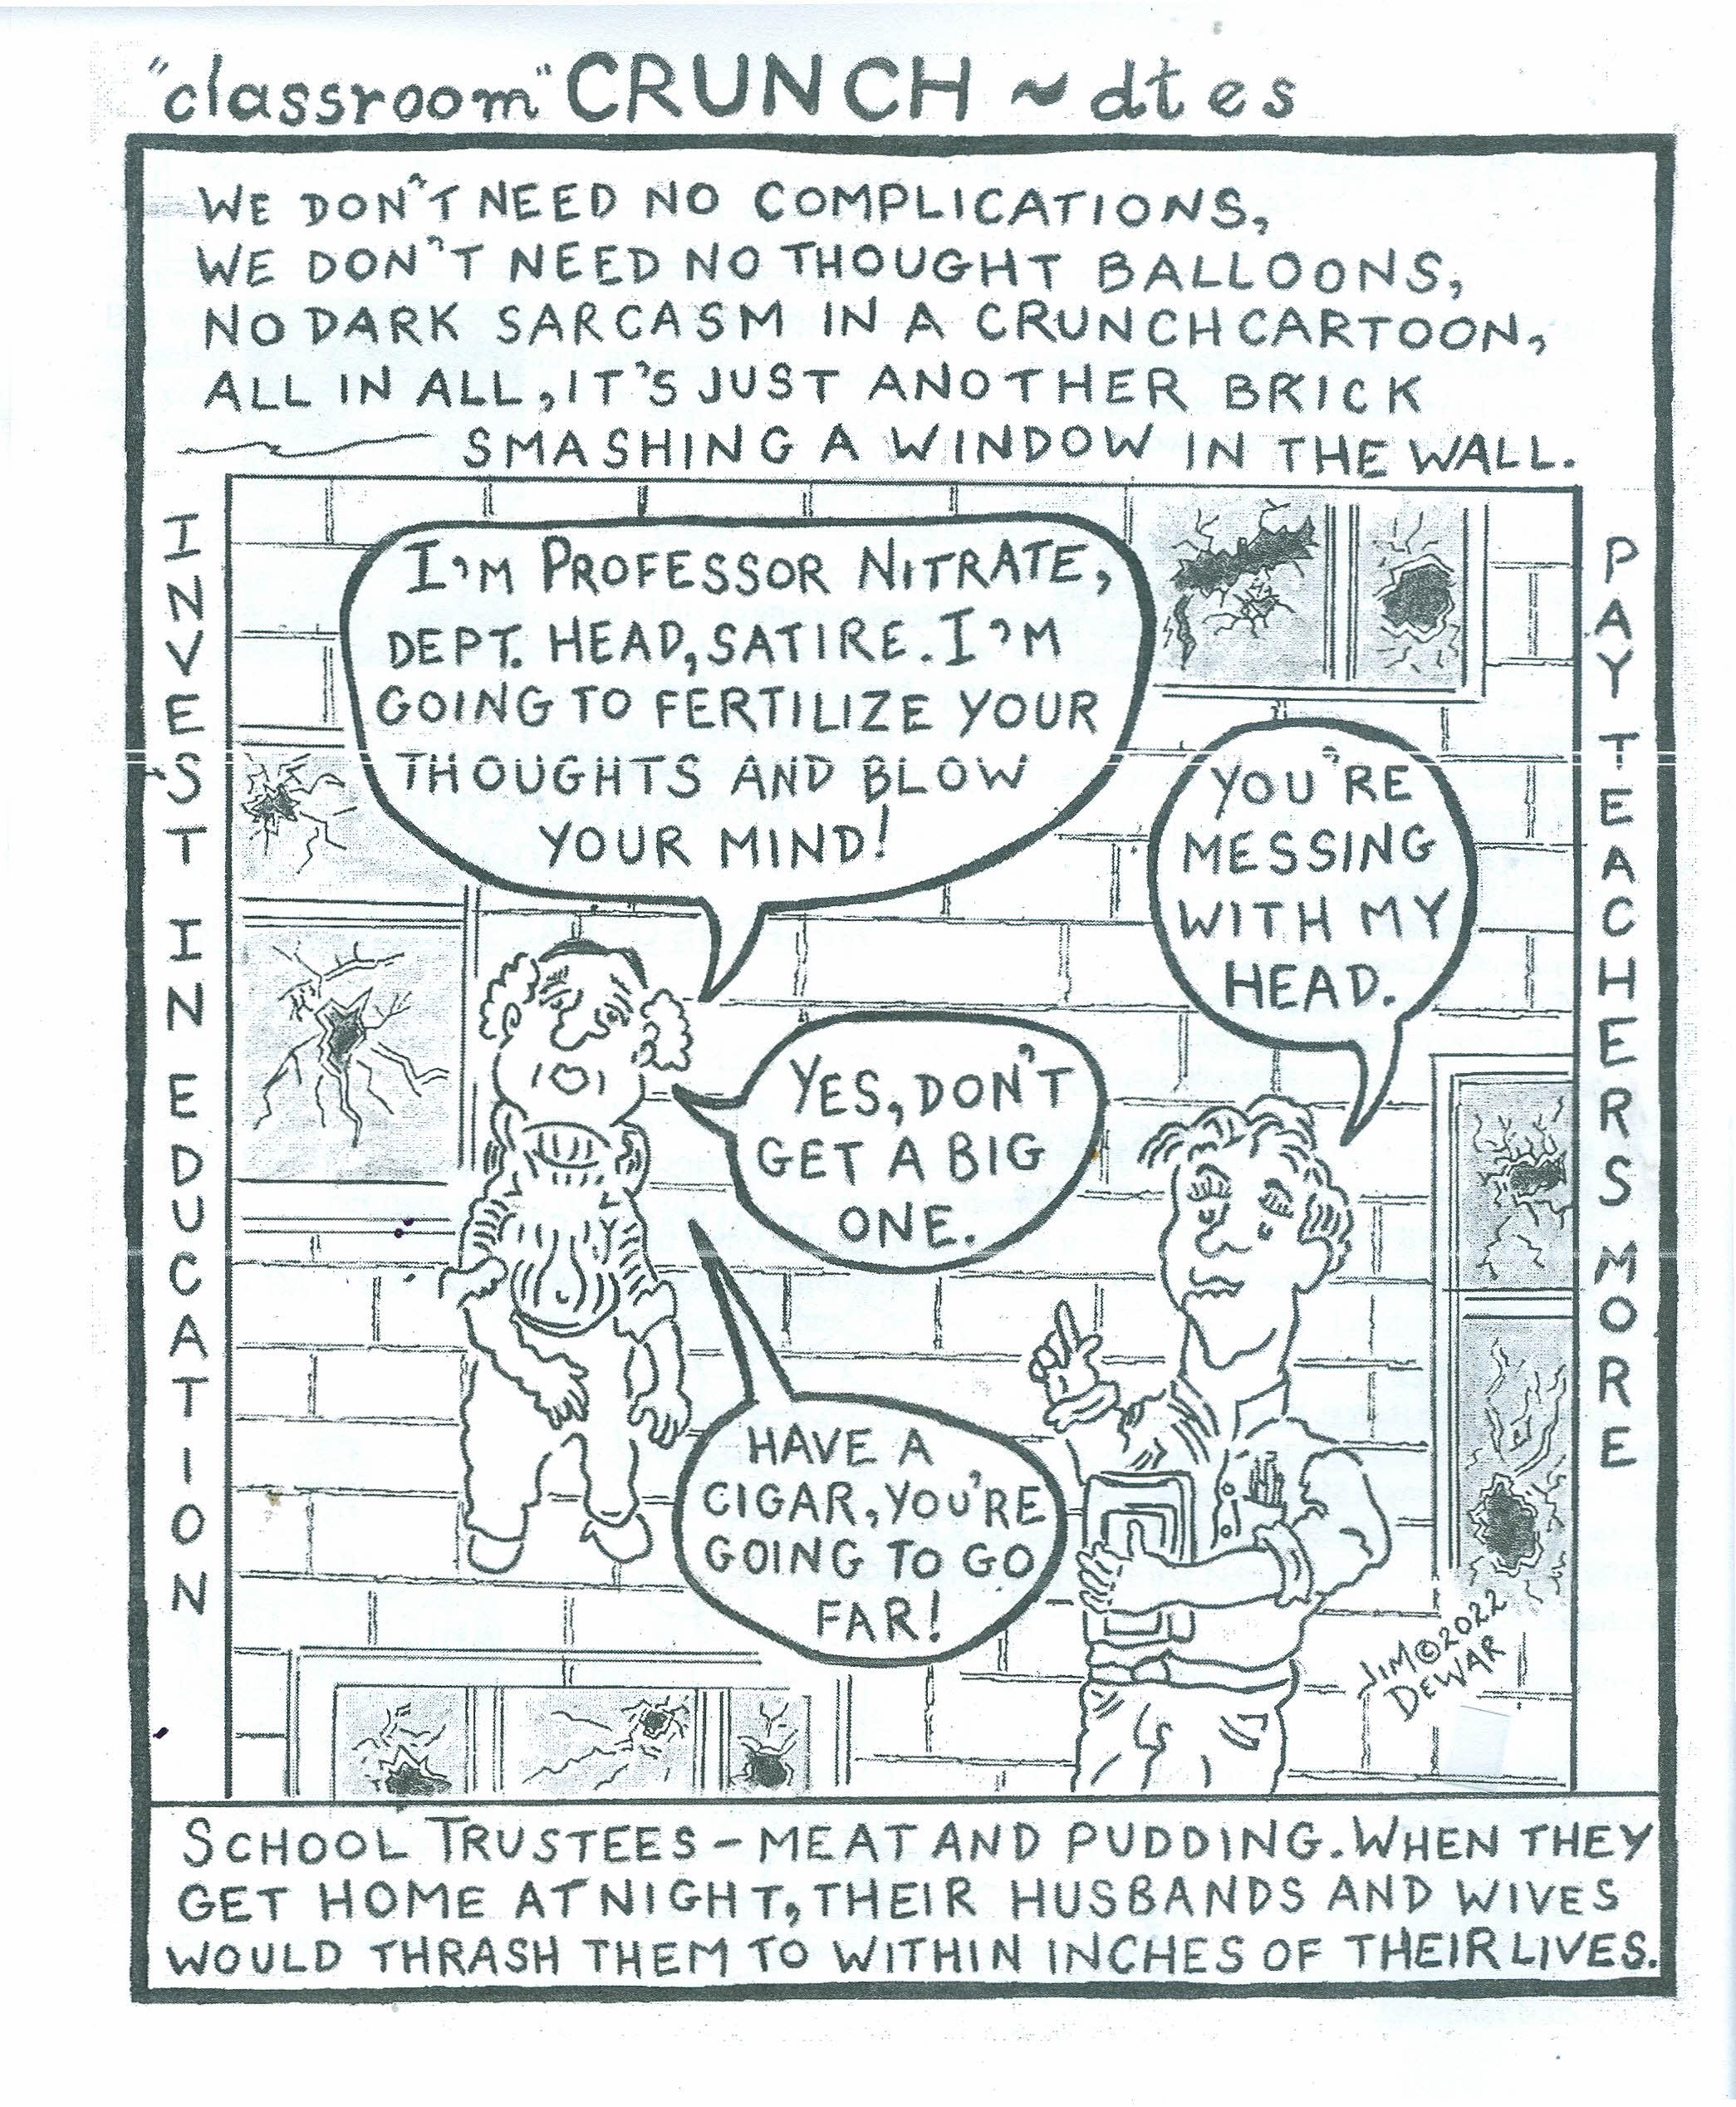 "classroom" CRUNCH ~ dtes
WE DON'T NEED NO COMPLICATIONS,
WE DON'T NEED NO THOUGHT BALLOONS,
NO DARK SARCASM IN A CRUNCHCARTOON,
ALL IN ALL, IT'S JUST ANOTHER BRICK
SMASHING A WINDOW IN THE WALL.
INVEST IN EDUCATION
I'M PROFESSOR NITRATE,
DEPT. HEAD, SATIRE. I'M
GOING TO FERTILIZE YOUR
THOUGHTS AND BLOW
YOUR MIND!
YOU'RE
MESSING
WITH MY
HEAD.
YES, DON'T
GET A BIG
ONE.
HAVE A
CIGAR, YOU'RE
GOING TO GO
FAR!
PAY TEACHERS MORE
JIM © 2022
DEWAR
SCHOOL TRUSTEES - MEAT AND PUDDING. WHEN THEY
GET HOME AT NIGHT, THEIR HUSBANDS AND WIVES
WOULD THRASH THEM TO WITHIN INCHES OF THEIR LIVES.